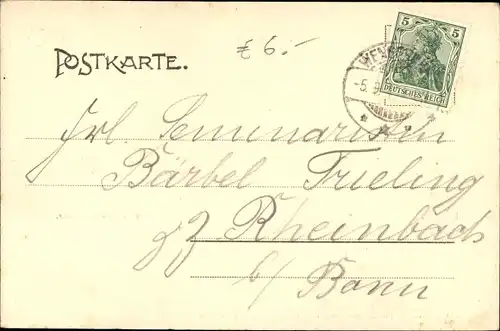 £ 6.-
POSTKARTE.
5 5
DEUTSCHES REICH
-5.9
Frl. Seminaristin
Bärbel Frieling
zZ Rheinbach
b/ Bonn